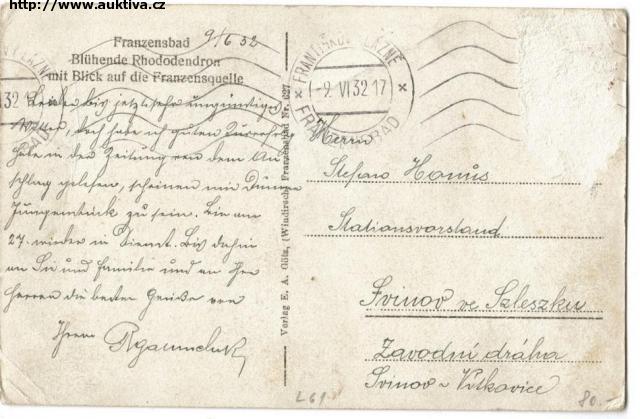 http://www.auktiva.cz
Franzensbad
Blühende Rhododendron
mit Blick auf die Franzensquelle
9/6 32
Leider bis jetzt sehr ungünstiges
Wetter, doch habe ich guten
Habe in der Zeitung von dem An
schlag gelesen, scheinen mir Dumme
Jungenstück zu sein. Bin am
27. wieder in Dienst. Bis dahin
an Sie und Familie und an Ihre
Herren die besten Grüße von
Ihrem
Verlag E. A. Götz, (Windirsch) Franzensbad Nr. 627.
FRANTIŠKOVY LÁZNĚ
-9. VI 32 17
FRANZENSBAD
Herrn
Stefano Hanus
Stationsvorstand
Svinov ve Szleszku
Závodní dráha
Svinov - Vítkovice
L61
80.-